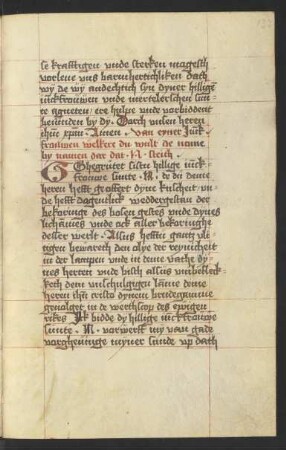 se krafftigen vnde sterken magesch
vorlene vns barmhertichliken dath
wy de wy andechtich syn dyner hilligē
iūckfrouwen vnde mertelerschen sun
te agneten / ere hulpe vnde vorbiddent
beuinden by dy . Dorch vnsen heren
ihm̄ xpm̄ . Amen . van eyner Juck
frauwen welkere du wult de name
by namen dar dat . N . steith .
Ghegrutet sistu hillige iuck-
frouwe sunte . N . de du deme
heren hefft geoffert dyne kuscheit vn
de hefft dagentlick weddergestan der
bekoringe des bosen gestes vnde dynes
lichames vnde ock aller bekoringhe
desser werlt . Alsus hefftu gantz vli
tigen bewareth den olye der reynicheit
in der lampen vnde in deme vathe dy
nes herten vnde bisth alsus vnbeuleck-
keth dem vnschuldigen lamme deme
heren ihū cristo dynem brudegamme
geuolget in de werthscop des ewigen
rikes Ik bidde dy hillige iuckfrouwe
sunte . N . vorwerff my van gade
vorgheuinge myner sunde vp dath